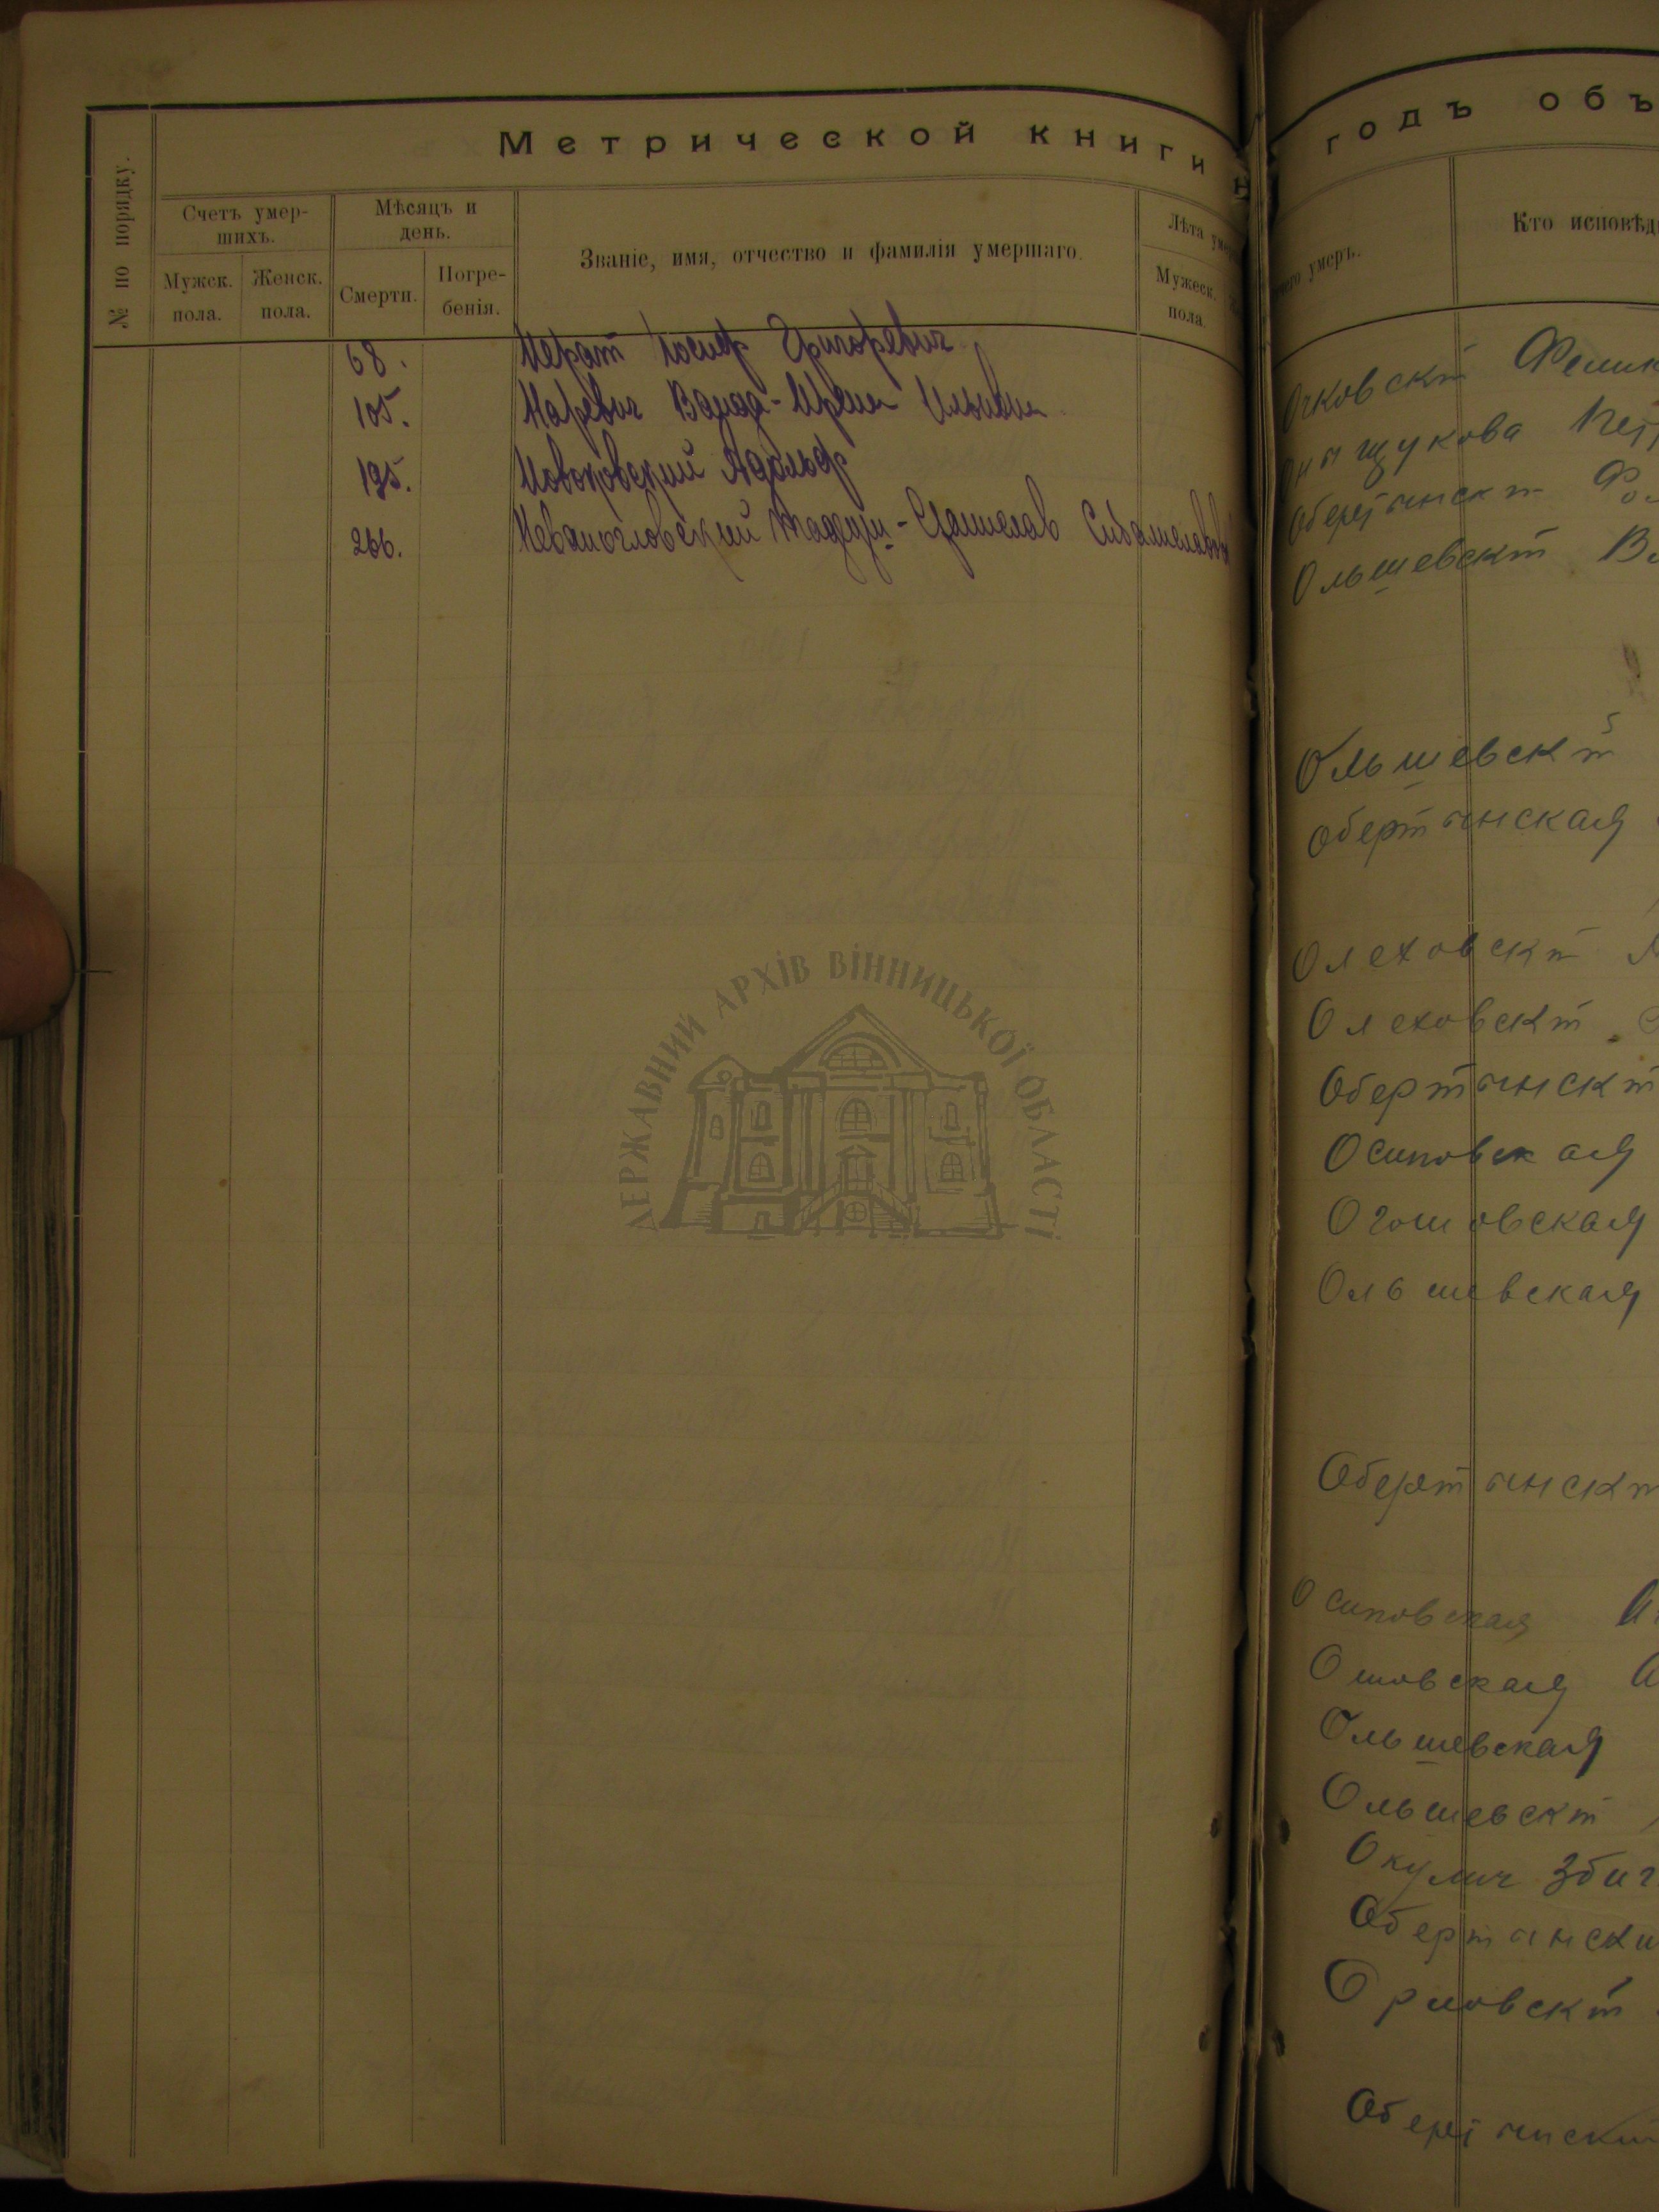 Метрической книги
№ по порядку.
Счетъ умер-
шихъ.
Мужск.
пола.
Женск.
пола.
Мѣсяцъ и
день.
Смерти.
Погре-
бенія.
Званіе, имя, отчество и фамилія умершаго.
Лѣта
Мужеск.
пола.
68. Нерот Иосиф Григоревич
105. Наревич Ванда-Ирена
195. Новоховский Адольф
266. Станислав
ДЕРЖАВНИЙ АРХІВ ВІННИЦЬКОЇ ОБЛАСТІ
годъ объ
чего умеръ.
Кто исповѣд
Очковскій Феликс
Онищукова
Обертынскій
Ольшевскій
Ольшевскій
Обертынская
Олеховскій
Олеховскій
Обертынскій
Осиповская
Огошовская
Ольшевская
Обертынскі
Осиповская
Ошовская
Ольшевская
Ольшевскій
Окулич Збиг
Обертынски
Орловскій
Обертынский